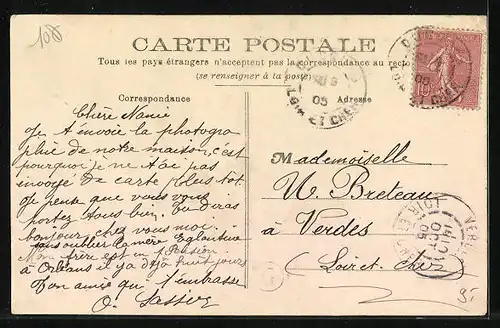 108
CARTE POSTALE
Tous les pays étrangers n'acceptent pas la correspondance au recto
(se renseigner à la poste)
Correspondance
Adresse
Chère Nanie
Je t'envoie la photogra
phie de notre maison, c'est
pourquoi je ne t'ai pas
envoyé de carte plus tôt.
Je pense que vous vous
portez tous bien. Tu diras
bonjour chez vous moi.
sans oublier la mère Eglantine
Mon frère est en pension
à Orléans il y a déjà huit jours
Ton amie qui t'embrasse
O. Sassier
Mademoiselle
M. Breteau
à Verdes
(Loir et cher)
05
LOIR ET CHER
10